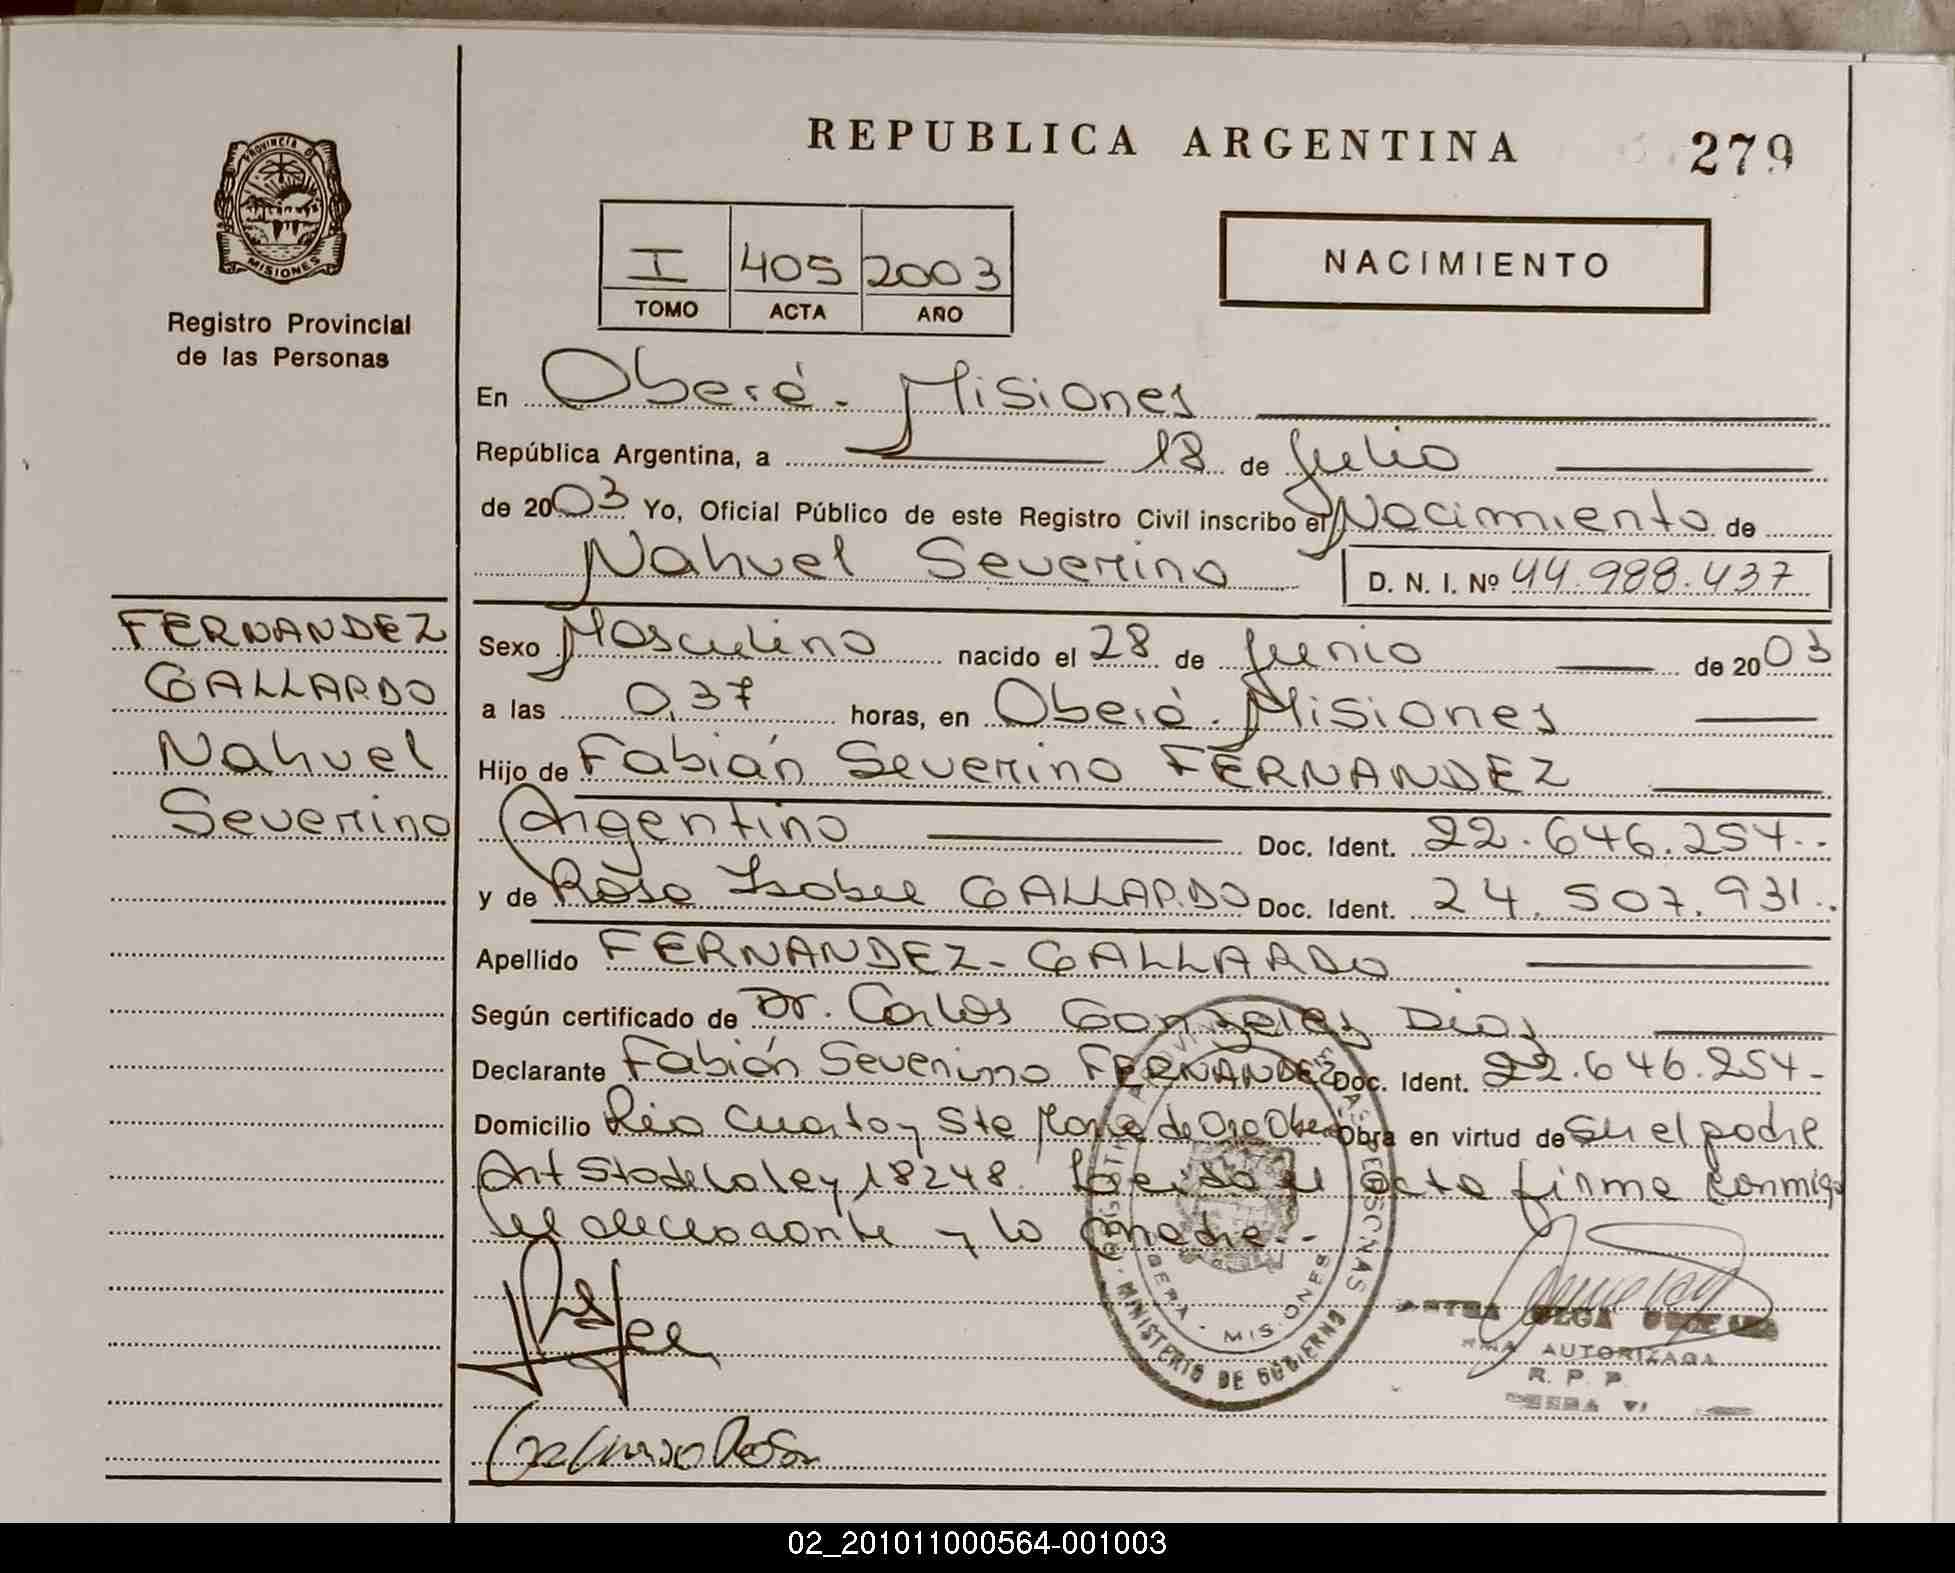 REPUBLICA ARGENTINA
279
PROVINCIA D
MISIONES
Registro Provincial
de las Personas
I 405 2003
TOMO ACTA AÑO
NACIMIENTO
En Oberá - Misiones
República Argentina, a 18 de Julio
de 2003 Yo, Oficial Público de este Registro Civil inscribo el Nacimiento de
Nahuel Severino D. N. I. Nº 44.988.437
FERNANDEZ
GALLARDO
Nahuel
Severino
Sexo Masculino nacido el 28 de Junio de 2003
a las 0,37 horas, en Oberá - Misiones
Hijo de Fabián Severino FERNANDEZ
Argentino Doc. Ident. 22.646.254.-
y de Rosa Isabel GALLARDO Doc. Ident. 24.507.931..
Apellido FERNANDEZ - GALLARDO
Según certificado de Dr. Carlos Gonzelez Dias
Declarante Fabián Severino FERNANDEZ Doc. Ident. 22.646.254-
Domicilio Rio Cuarto y Sta Maria de Oro Oberá Obra en virtud de ser el padre
Art 5to de la ley 18248. Leida el acta firma conmigo
el declarante y la madre.-
MINISTERIO DE GOBIERNO
OBERA - MISIONES
VEGA
AUTORIZADA
R. P. P.
Gallardo Rosa
02_201011000564-001003